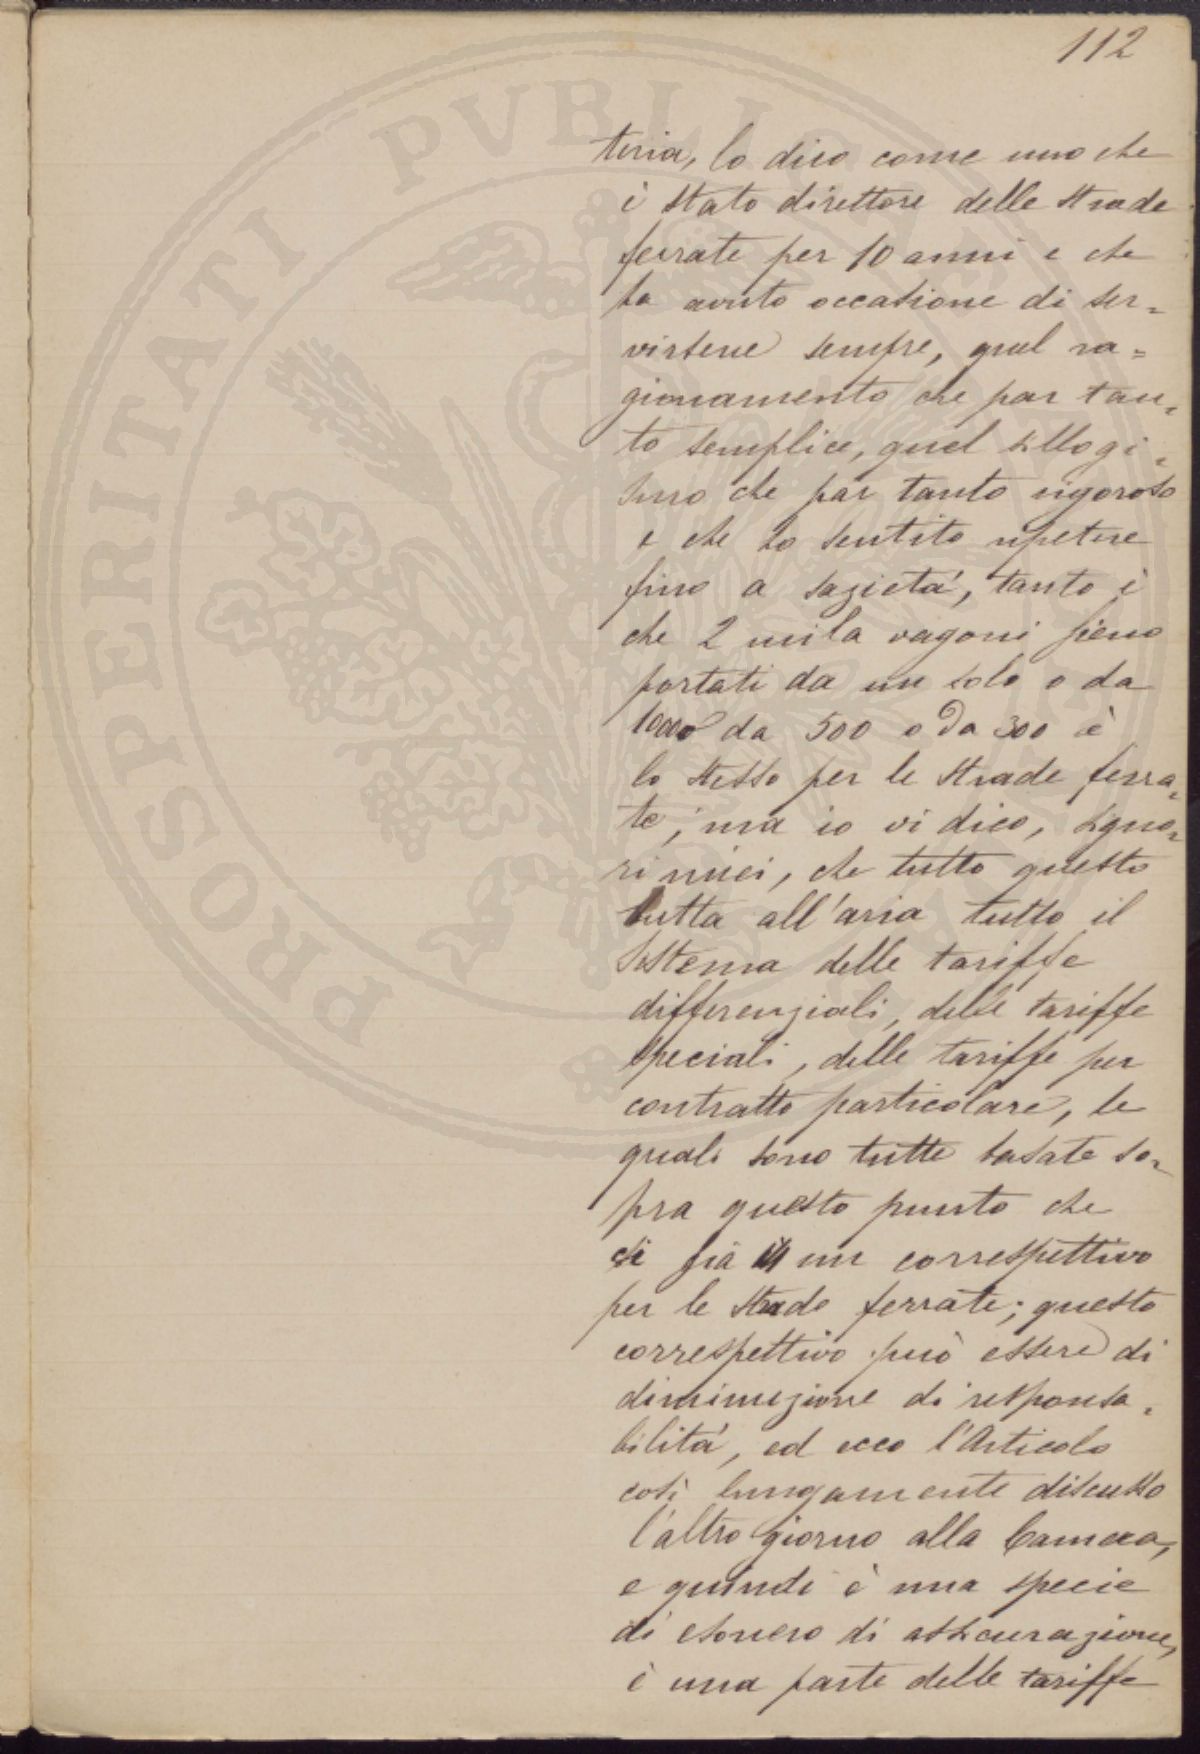 112
teria, lo dico come uno che
è stato direttore delle strade
ferrate per 10 anni e che
ha avuto occasione di ser=
virsene sempre, quel ra=
gionamento che par tan=
to semplice, quel sillogi=
smo che par tanto rigoroso
e che ho sentito ripetere
fino a sazietà, tanto è
che 2 mila vagoni sieno
portati da un solo o da
1000 da 500 o da 300 è
lo stesso per le strade ferra=
te; ma io vi dico, signo=
ri miei, che tutto questo
butta all'aria tutto il
sistema delle tariffe
differenziali, delle tariffe
speciali, delle tariffe per
contratto particolare, le
quali sono tutte basate so=
pra questo punto che
ci sia un correspettivo
per le strade ferrate; questo
correspettivo può essere di
diminuzione di responsa=
bilità, ed ecco l'Articolo
così lungamente discusso
l'altro giorno alla Camera,
e quindi è una specie
di esonero di assicurazione,
è una parte delle tariffe
PROSPERITATI PVBLICAE